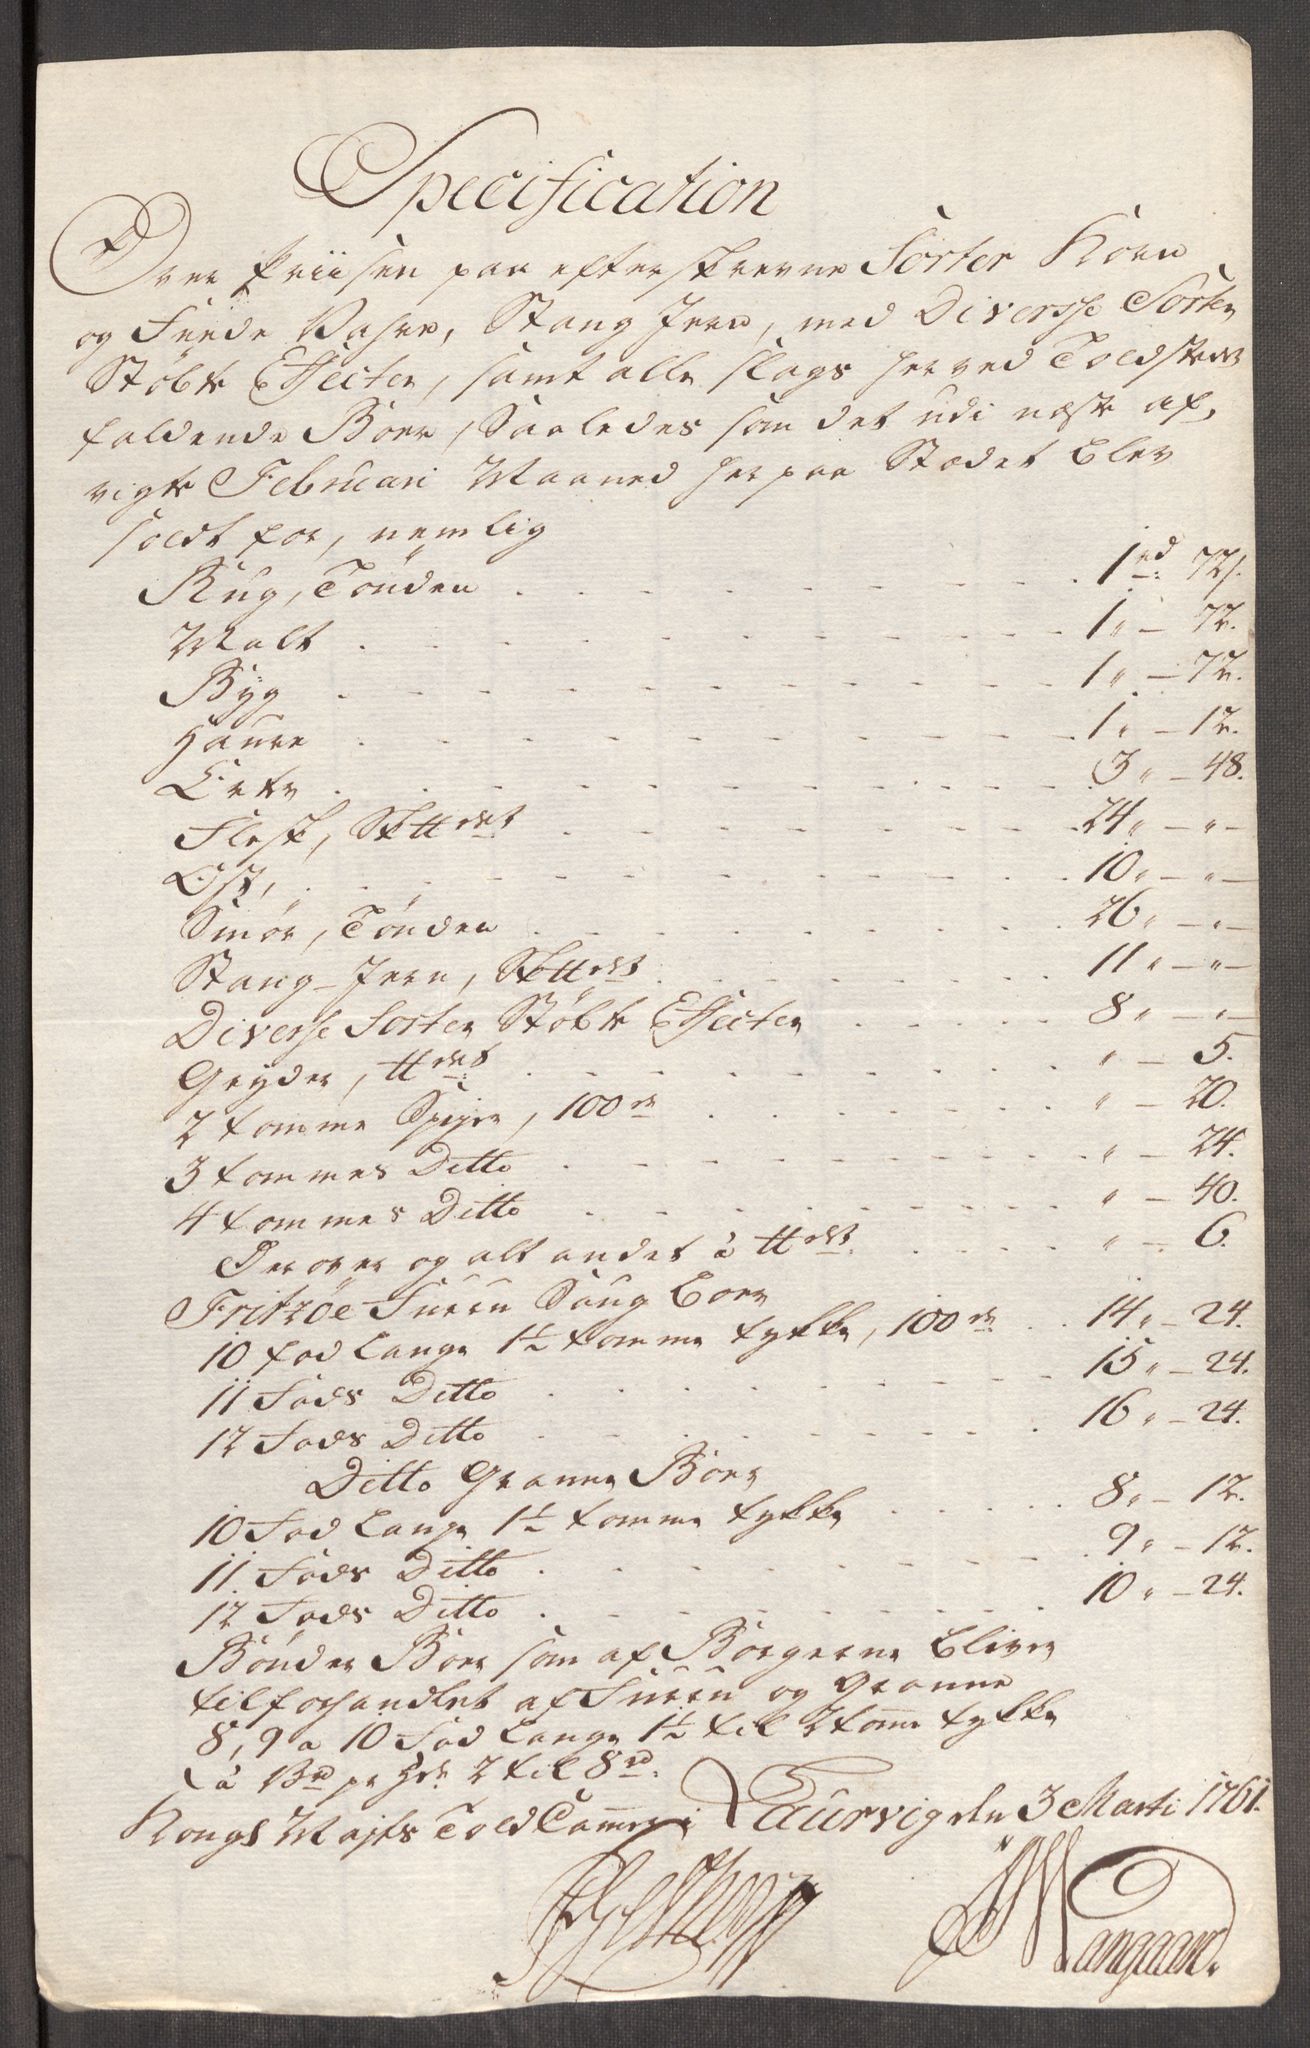 Specification
Over Priisen paa efterskrevne Sorter Korn
og Feede Vahre, Stang Jern, med Diversse Sorter
Støbte Effecter, samt alle slags her ved Toldstedet
faldende Bord, Saaledes som det udi næst af-
vigte Februari Maaned her paa Stædet blev
soldt for, nemlig
Rug, Tønden 1 rd: 72 s.
Malt 1 " — 72.
Byg 1 " — 72.
Haure 1 " — 12.
Erter 3 " — 48.
Flesk, Sk℔det 24 " — " —
Ost, " 10 " — " —
Smør, Tønden 26 " — " —
Stang-Jern, Sk℔det 11 " — " —
Diverse Sorter Støbte Effecter 8 " — " —
Gryder, ℔det " — 5.
2 tomme Spiger, 100de " — 20.
3 tommes Ditto " — 24.
4 tommes Ditto " — 40.
Derover og alt andet à ℔det " — 6.
Fritzöe Furru Saug Bord
10 fod Lange 1½ tomme tykke, 100de 14 " — 24.
11 Fods Ditto 15 " — 24.
12 Fods Ditto 16 " — 24.
Ditto Granne Bord
10 Fod Lange 1½ tomme tykke 8 " — 12.
11 Fods Ditto 9 " — 12.
12 Fods Ditto 10 " — 24.
Bønder Bord som af Borgerne bliver
tilforhandlet af Furru og Granne
8, 9 a 10 Fod Lange 1½ til 2 tome tykke
à pr 2 til 8 rd:
Kongl Majts Told Camer i Laurvig den 3 Marti 1761.